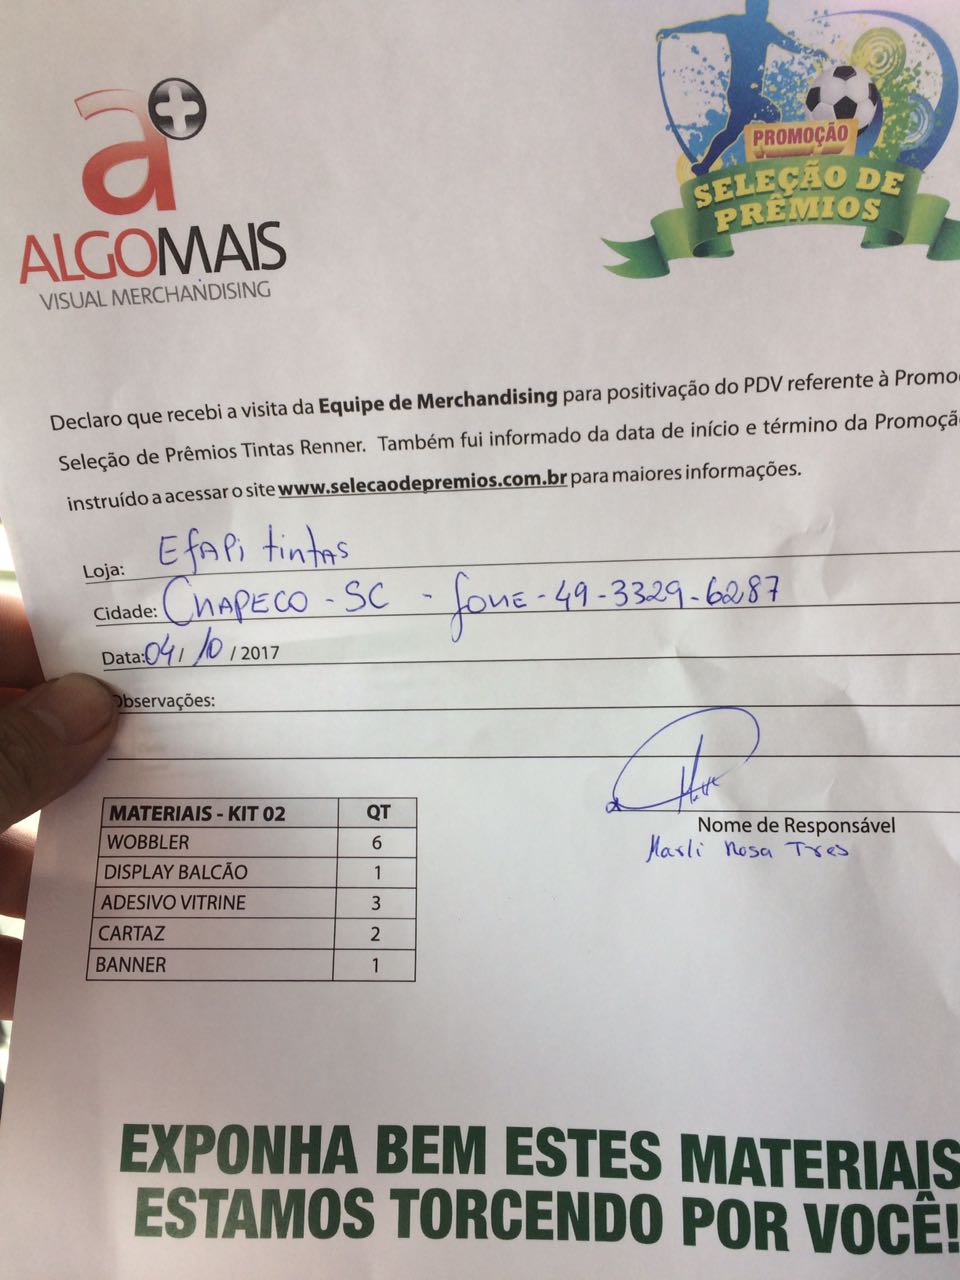 a+
ALGOMAIS
VISUAL MERCHANDISING
PROMOÇÃO
SELEÇÃO DE
PRÊMIOS
Declaro que recebi a visita da Equipe de Merchandising para positivação do PDV referente à Promo
Seleção de Prêmios Tintas Renner. Também fui informado da data de início e término da Promoção
instruído a acessar o site www.selecaodepremios.com.br para maiores informações.
Loja: EfAPi tintAS
Cidade: CHAPECO - SC - fone - 49-3329-6287
Data: 04/10/2017
Observações:
Nome de Responsável
Marli Rosa Tres
MATERIAIS - KIT 02 QT
WOBBLER 6
DISPLAY BALCÃO 1
ADESIVO VITRINE 3
CARTAZ 2
BANNER 1
EXPONHA BEM ESTES MATERIAIS
ESTAMOS TORCENDO POR VOCÊ!